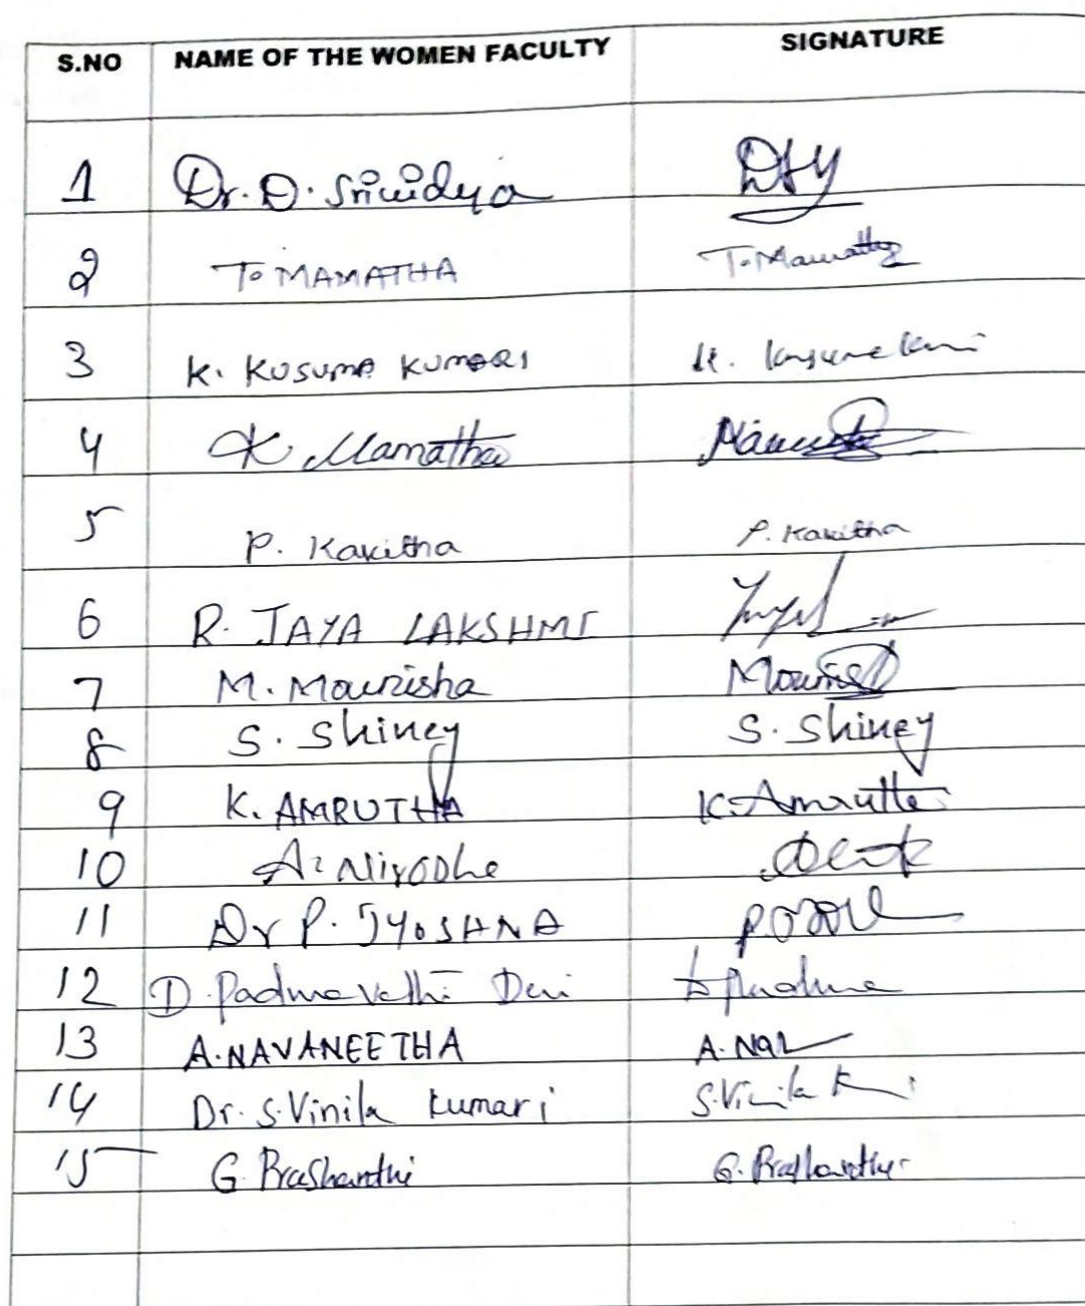 S.NO NAME OF THE WOMEN FACULTY SIGNATURE
1 Dr. D. Srividya
2 T. MAMATHA T. Mamatha
3 K. KUSUMA KUMARI K. Kusuma
4 K. Mamatha
5 P. Kavitha P. Kavitha
6 R. JAYA LAKSHMI
7 M. Mounisha
8 S. Shiney S. Shiney
9 K. AMRUTHA K. Amrutha
10 A. Nirodhe
11 Dr P. JYOSHNA
12 D. Padmavathi Devi D Padma
13 A. NAVANEETHA A. Nav
14 Dr. S. Vinila kumari S. Vinila K
15 G. Prashanthi G. Prashanthi